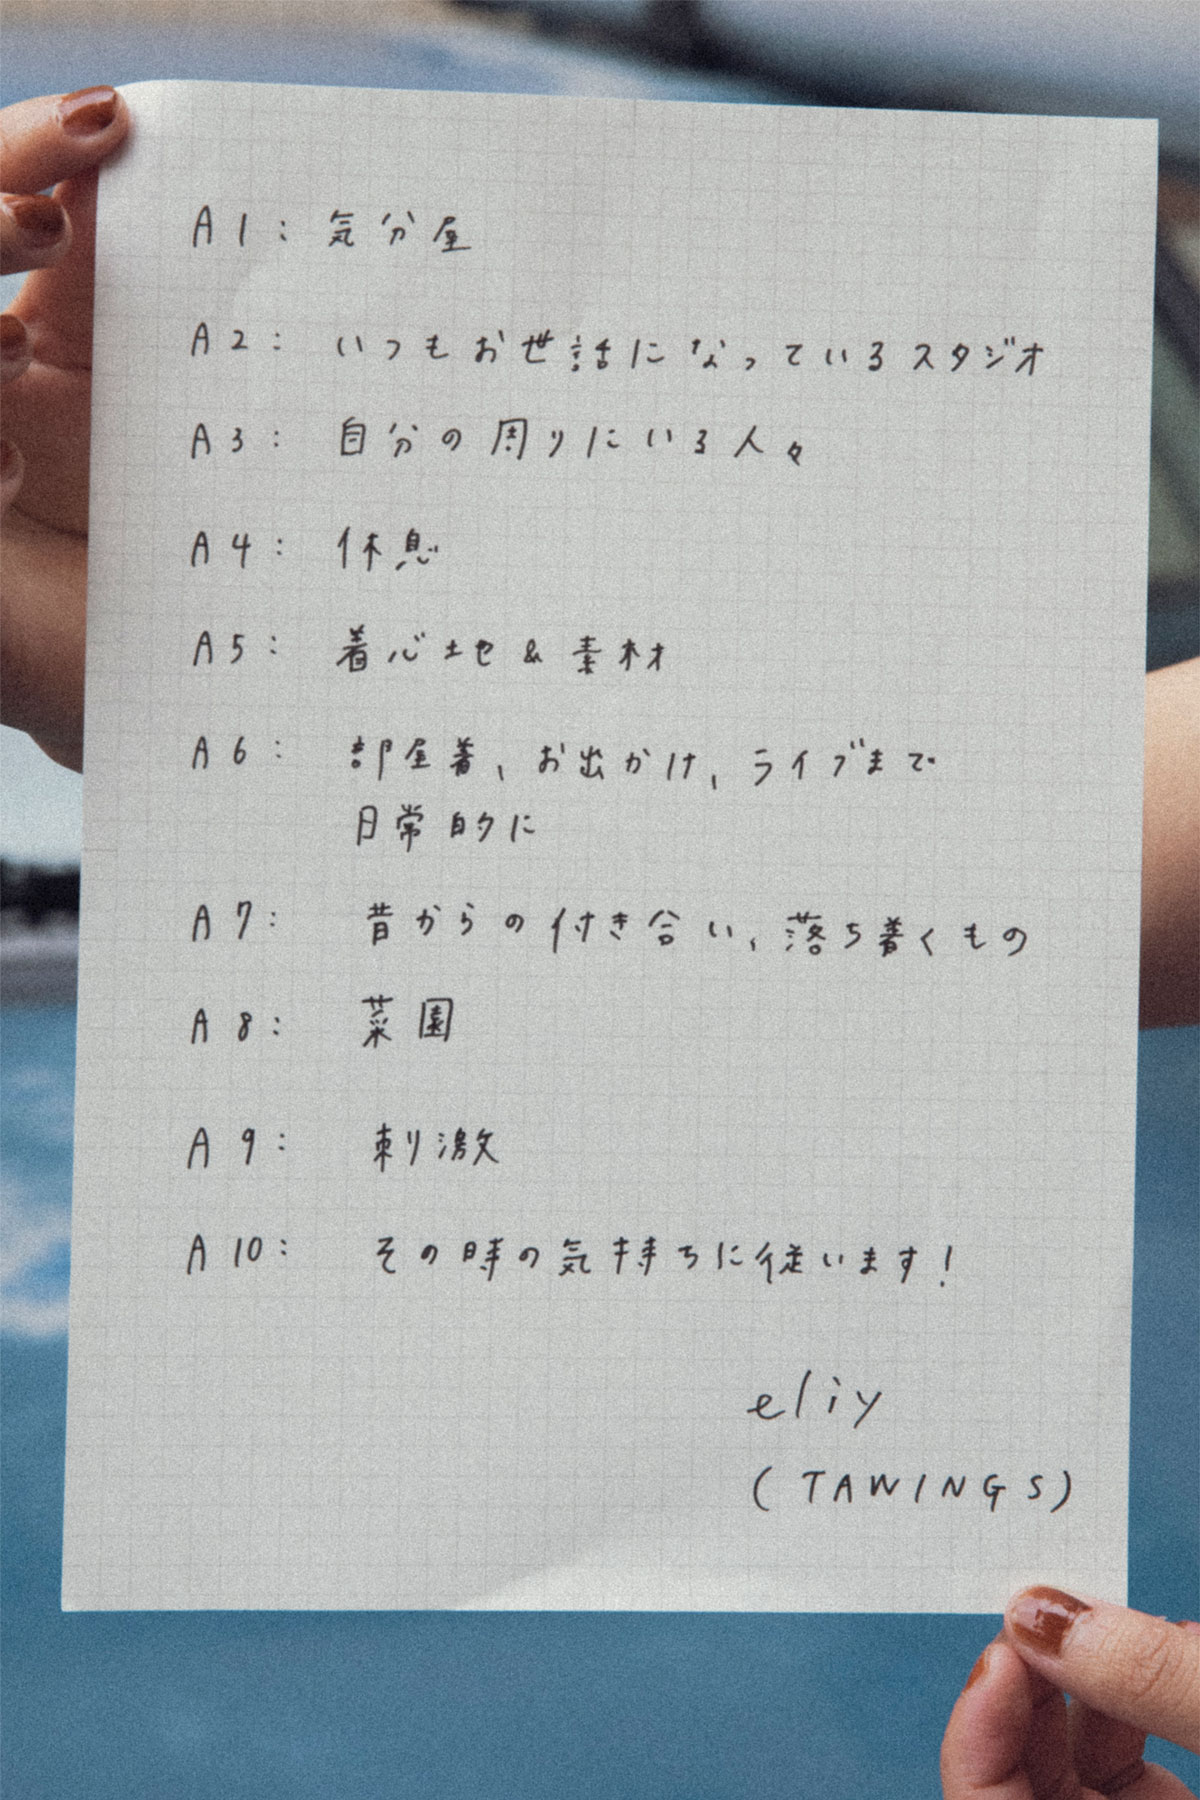 A1: 気分屋
A2: いつもお世話になっているスタジオ
A3: 自分の周りにいる人々
A4: 休息
A5: 着心地&素材
A6: 部屋着、お出かけ、ライブまで
日常的に
A7: 昔からの付き合い、落ち着くもの
A8: 菜園
A9: 刺激
A10: その時の気持ちに従います!
eliy
(TAWINGS)